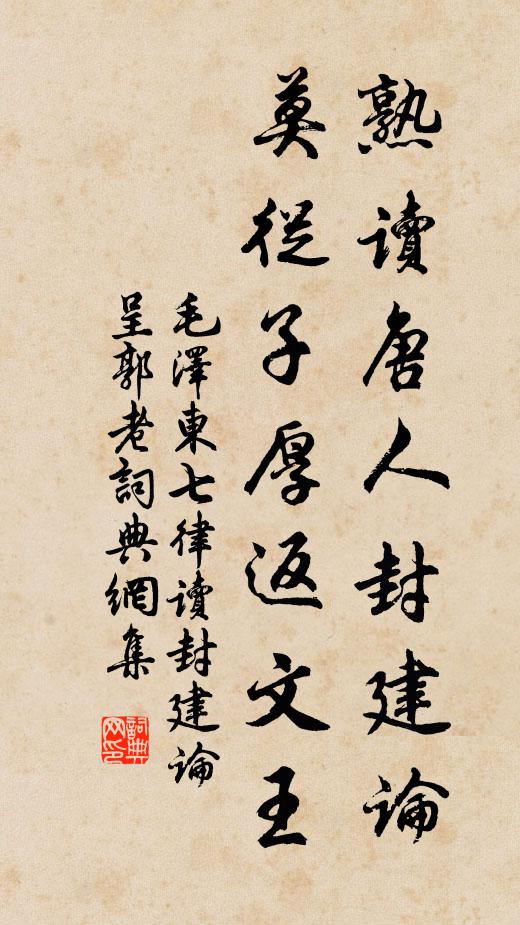 熟讀唐人封建論
莫從子厚返文王
毛澤東七律讀封建論
呈郭老詞典網集
詞典网印